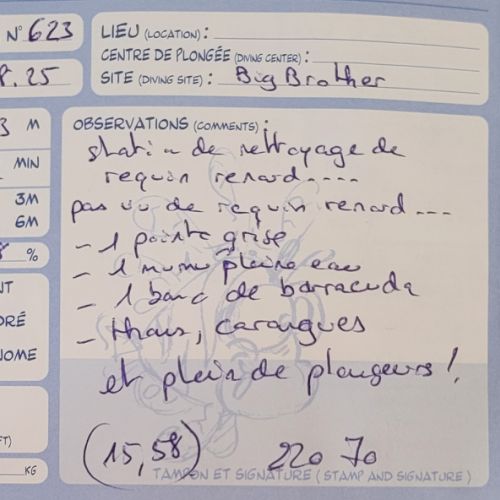 N° 623
P. 25
3 M
MIN
3M
6M
%
NT
DRÉ
NOME
FT)
KG
LIEU (LOCATION) :
CENTRE DE PLONGÉE (DIVING CENTER) :
SITE (DIVING SITE) : Big Brother
OBSERVATIONS (COMMENTS) :
station de nettoyage de
requin renard....
pas vu de requin renard...
- 1 pointe grise
- 1 mumu pleine eau
- 1 banc de barracuda
- thons, carangues
et plein de plongeurs !
(15,58) 220 70
TAMPON ET SIGNATURE (STAMP AND SIGNATURE)